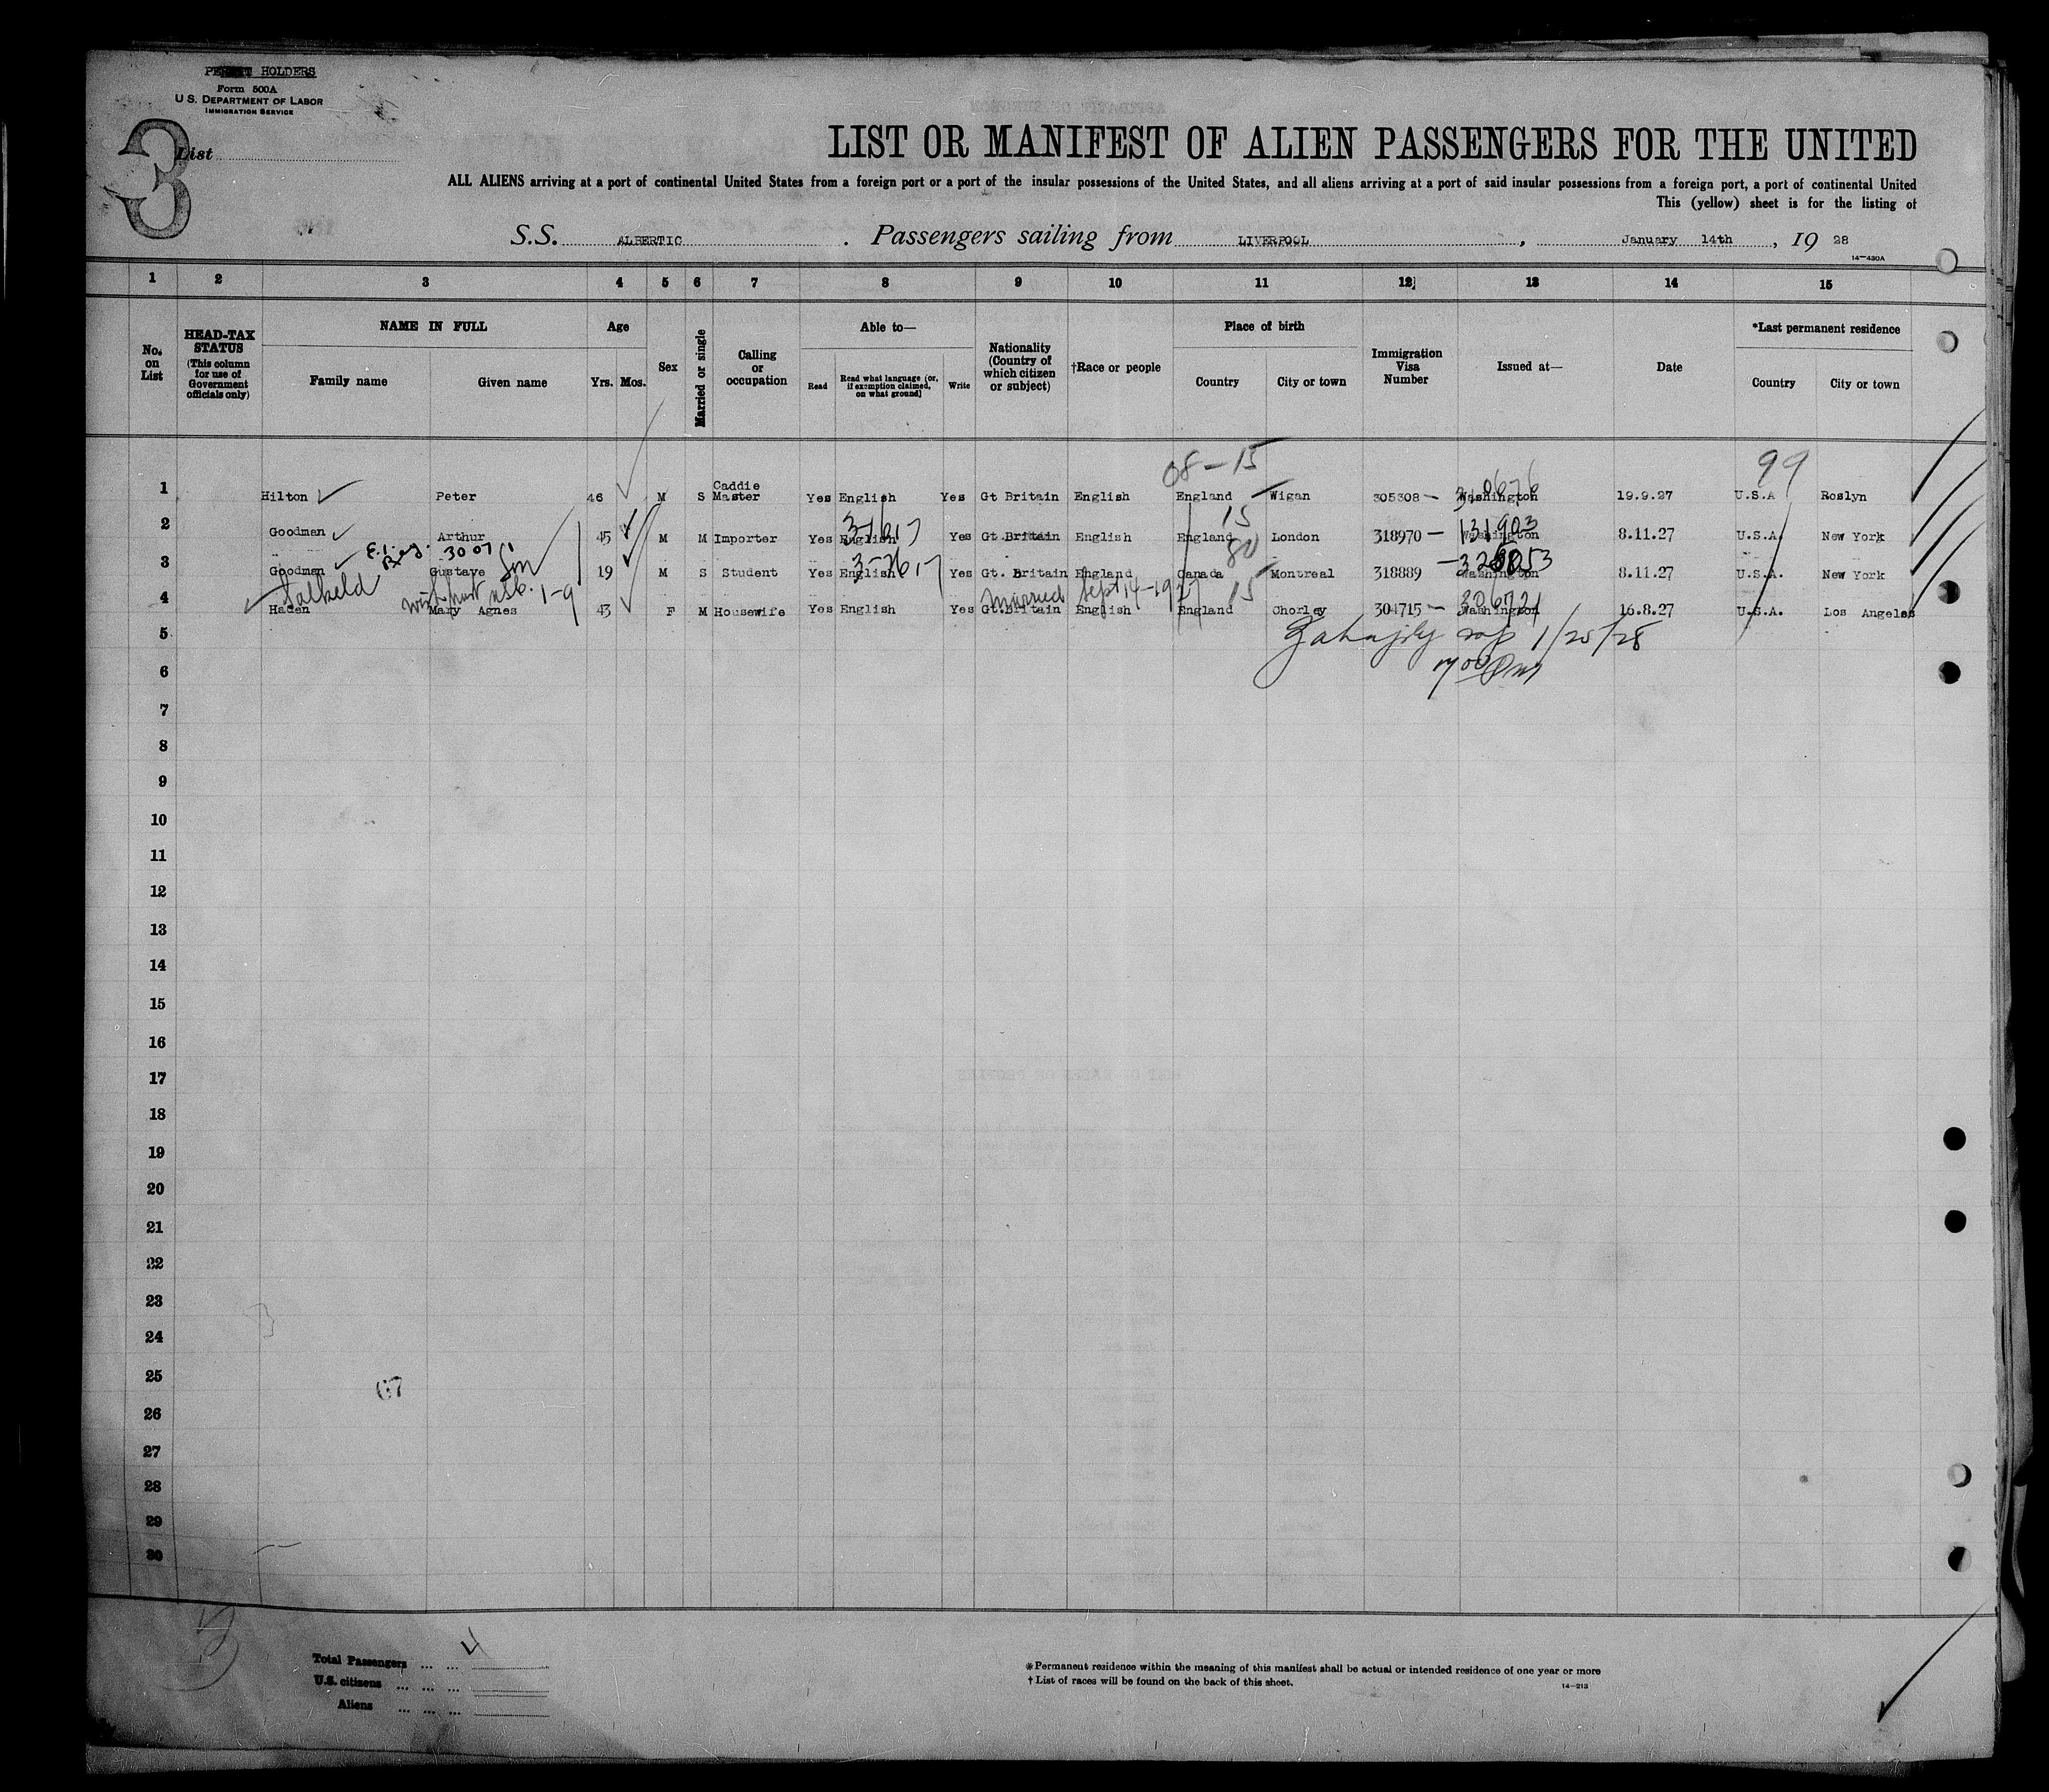 HOLDERS
Form 500A
U S. DEPARTMENT OF LABOR
IMMIGRATION SERVICE
3
List
LIST OR MANIFEST OF ALIEN PASSENGERS FOR THE UNITED
ALL ALIENS arriving at a port of continental United States from a foreign port or a port of the insular possessions of the United States, and all aliens arriving at a port of said insular possessions from a foreign port, a port of continental United
This (yellow) sheet is for the listing of
S.S. ALBERTIC . Passengers sailing from LIVERPOOL , January 14th , 19 28
14—430A
1 2 3 4 5 6 7 8 9 10 11 12 13 14 15
No. on List
HEAD-TAX STATUS (This column for use of Government officials only)
NAME IN FULL
Family name Given name
Age
Yrs. Mos.
Sex
Married or single
Calling or occupation
Able to—
Read Read what language (or, if exemption claimed, on what ground) Write
Nationality (Country of which citizen or subject)
†Race or people
Place of birth
Country City or town
Immigration Visa Number
Issued at—
Date
*Last permanent residence
Country City or town
08-15 99
1 Hilton Peter 46 M S Caddie Master Yes English Yes Gt Britain English England Wigan 305308 — Washington 19.9.27 U.S.A Roslyn
3-1617 15 131903
2 Goodman Arthur 45 M M Importer Yes English Yes Gt.Britain English England London 318970 — Washington 8.11.27 U.S.A. New York
3007 Son 80
3 Goodman Gustave 19 M S Student Yes English Yes Gt. Britain England Canada Montreal 318889 Washington 8.11.27 U.S.A. New York
Salkeld 1-9 Married Sept 14-1927 15 306721
4 Haden Mary Agnes 43 F M Housewife Yes English Yes Gt.Britain English England Chorley 304715 — Washington 16.8.27 U.S.A. Los Angeles
5 1/25/28
6
7
8
9
10
11
12
13
14
15
16
17
18
19
20
21
22
23
24
25
26
27
28
29
30
Total Passengers ... ... 4
U.S. citizens ... ... ...
Aliens ... ... ...
*Permanent residence within the meaning of this manifest shall be actual or intended residence of one year or more
† List of races will be found on the back of this sheet.
14—213